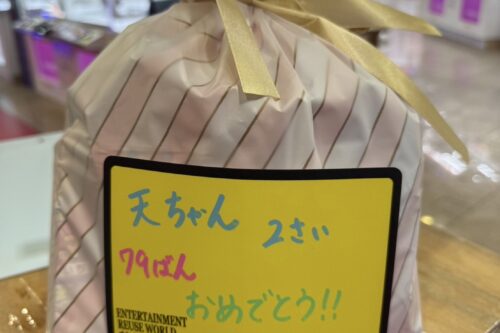 天ちゃん 2さい
79ばん
おめでとう!!
ENTERTAINMENT
REUSE WORLD